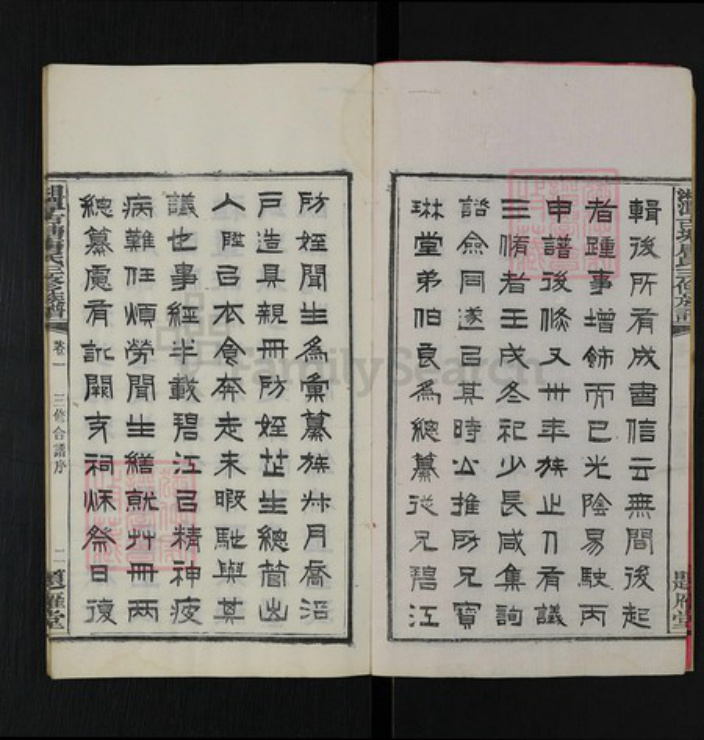 輯後所有成書信云無間後起
者踵事增飾而已光陰易駛丙
申譜後倏又卅年族之人有議
三脩者壬戌冬祀少長咸集詢
諮僉同遂以其時公推防兄寶
琳堂弟伯良為總纂從兄碧江
防姪聞生為彙纂族叔月喬沿
戶造具親冊防姪芷生總管出
入陞以衣食奔走未暇馳與其
議也事經半載碧江以精神疲
病難任煩勞聞生繕就艸冊兩
總纂慮有訛闕支祠烁祭日復
卷一
三修合譜序
二
FamilySearch